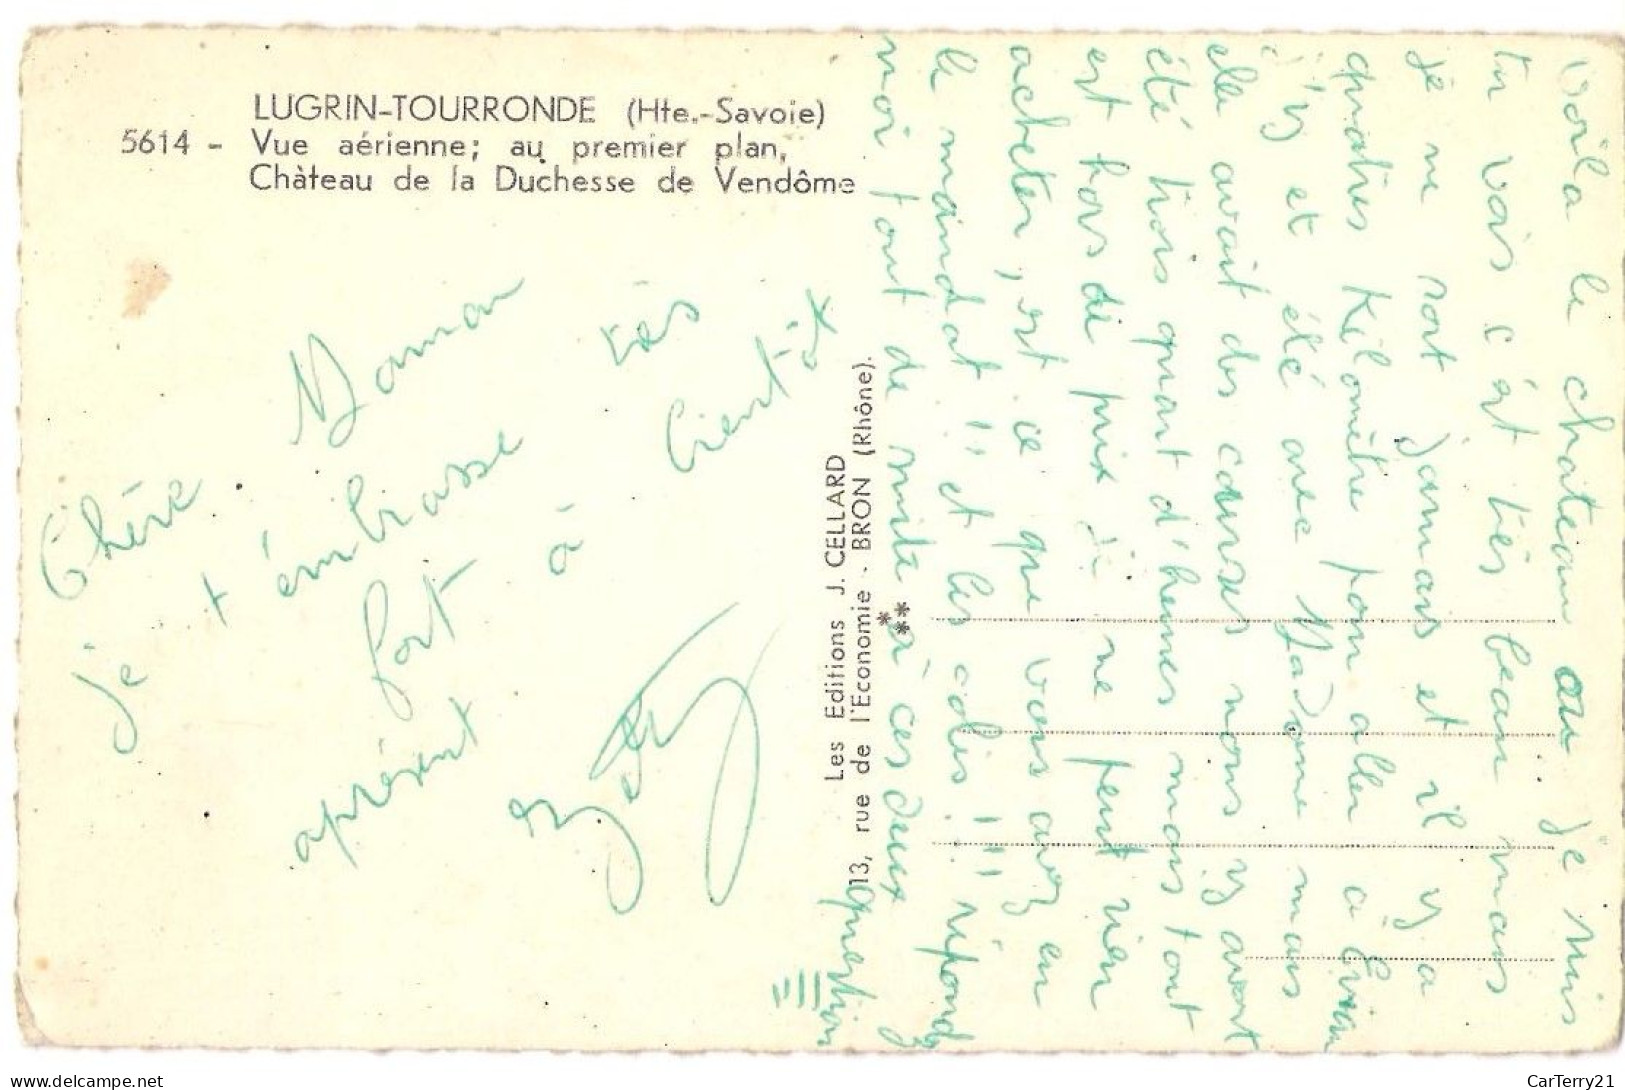 LUGRIN-TOURRONDE (Hte.-Savoie)
5614 - Vue aérienne; au premier plan,
Château de la Duchesse de Vendôme
Chère Maman
je t'émbrasse très
fort à bientôt
aprésent
Betty
Les Editions J. CELLARD
13, rue de l'Economie - BRON (Rhône).
voila le chateau ou je suis
tu vois c'ést très beau mais
je ne sort jamais et il y a
quatres Kilomètre pour aller à Évian
j'y et été avec Madame mais
elle avait des courses nous y avont
été trois quart d'heures mais tout
est hors de prix je ne peut rien
acheter, est ce que vous avez eu
le mandat !! et les colis !!! réponds
moi tout de suite à ces deux
question
CarTerry21